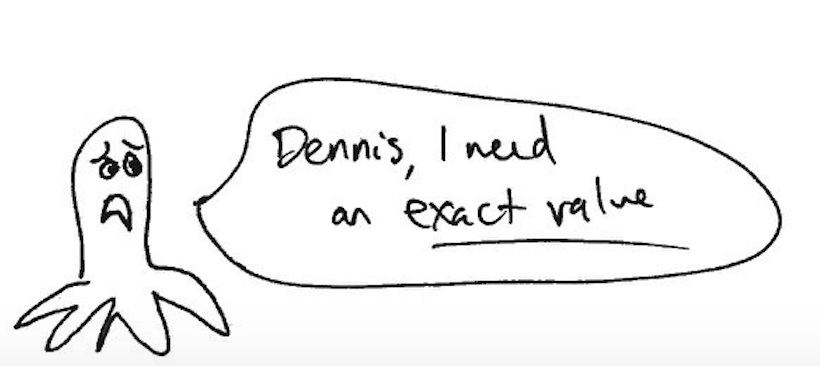 Dennis, I need
an exact value